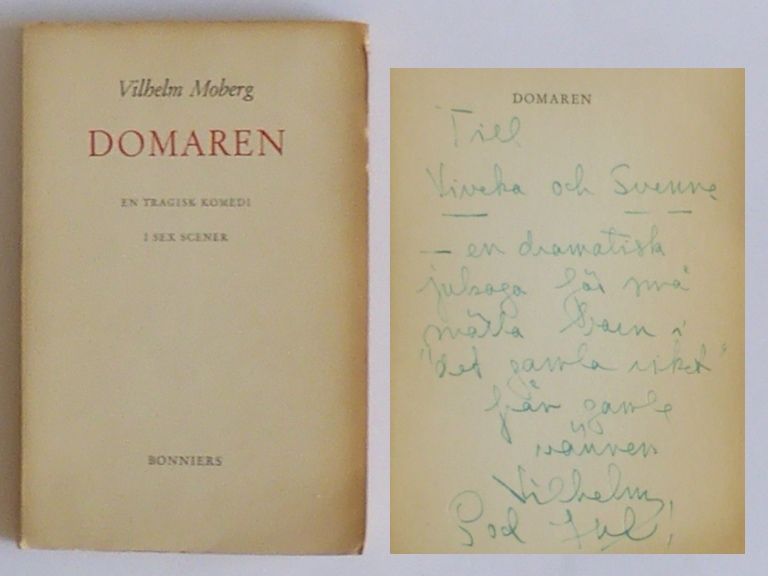 Vilhelm Moberg
DOMAREN
EN TRAGISK KOMEDI
I SEX SCENER
BONNIERS
DOMAREN
Till
Viveka och Svenne
– en dramatisk
julsaga för små
mätta barn i
"det gamla riket"
från gamle
vännen
Vilhelm,
God Jul!